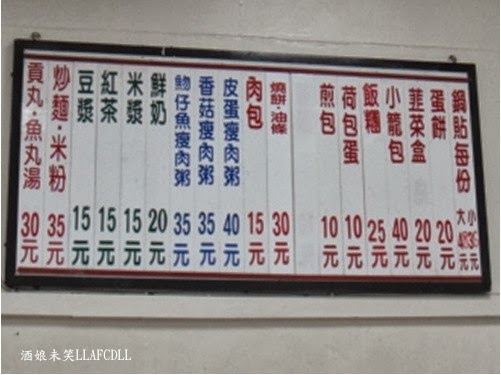 鍋貼每份 大 小 元 元
蛋餅 20元
韮菜盒 20元
小籠包 40元
飯糰 25元
荷包蛋 10元
煎包 10元
燒餅·油條 30元
肉包 15元
皮蛋瘦肉粥 40元
香菇瘦肉粥 35元
魩仔魚瘦肉粥 35元
鮮奶 20元
米漿 15元
紅茶 15元
豆漿 15元
炒麵·米粉 35元
貢丸·魚丸湯 30元
酒娘未笑LLAFCDLL